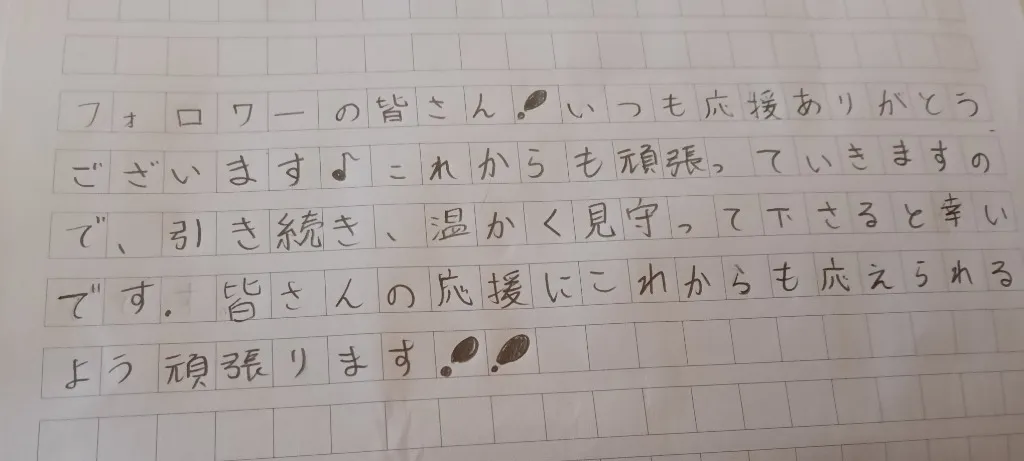 フォロワーの皆さん!いつも応援ありがとう
ございます♪これからも頑張っていきますの
で、引き続き、温かく見守って下さると幸い
です. 皆さんの応援にこれからも応えられる
よう頑張ります!!